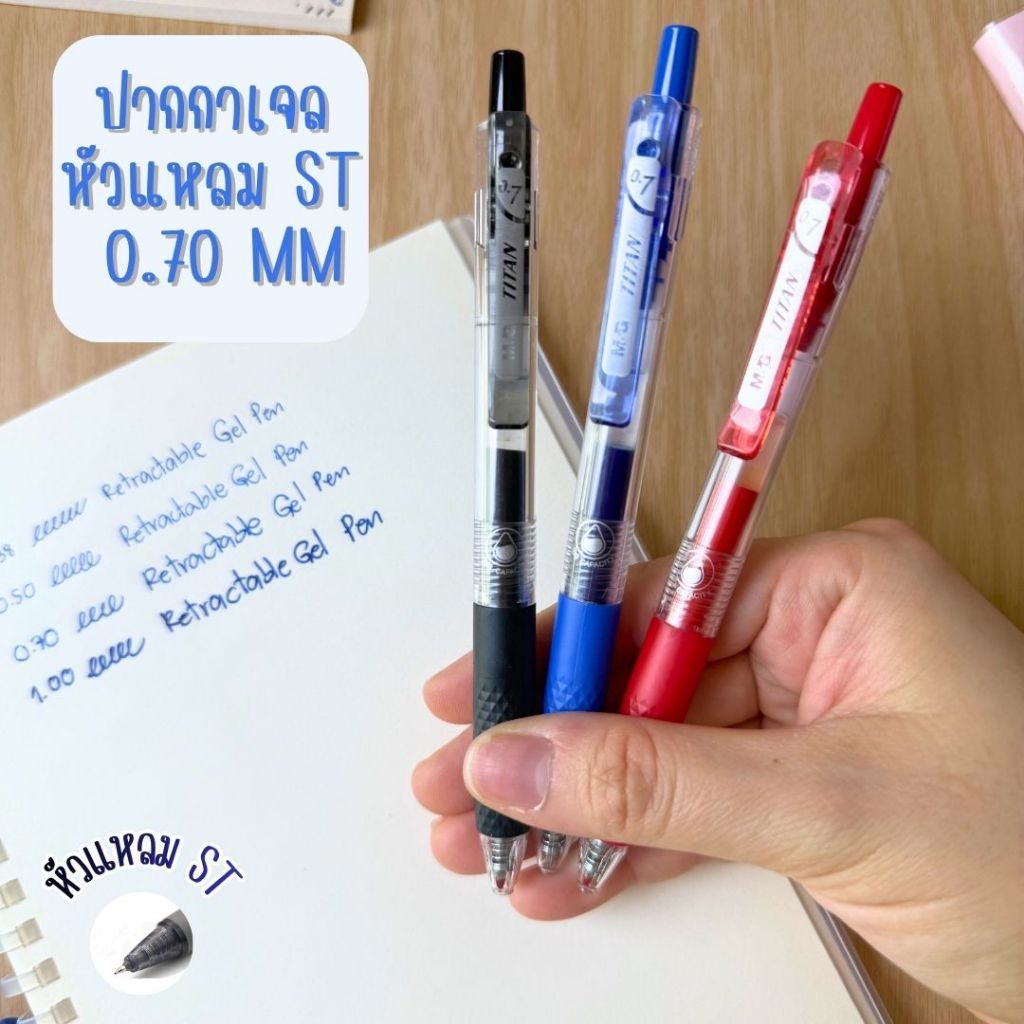 ปากกาเจล
หัวแหลม ST
0.70 MM
0.7
TITAN
M&G
CAPACITY
0.7
TITAN
M&G
CAPACITY
0.7
TITAN
M&G
CAPACITY
38 Retractable Gel Pen
0.50 Retractable Gel Pen
0.70 Retractable Gel Pen
1.00 Retractable Gel Pen
หัวแหลม ST